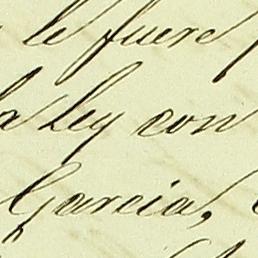 le fuere
la Ley con
Garcia,